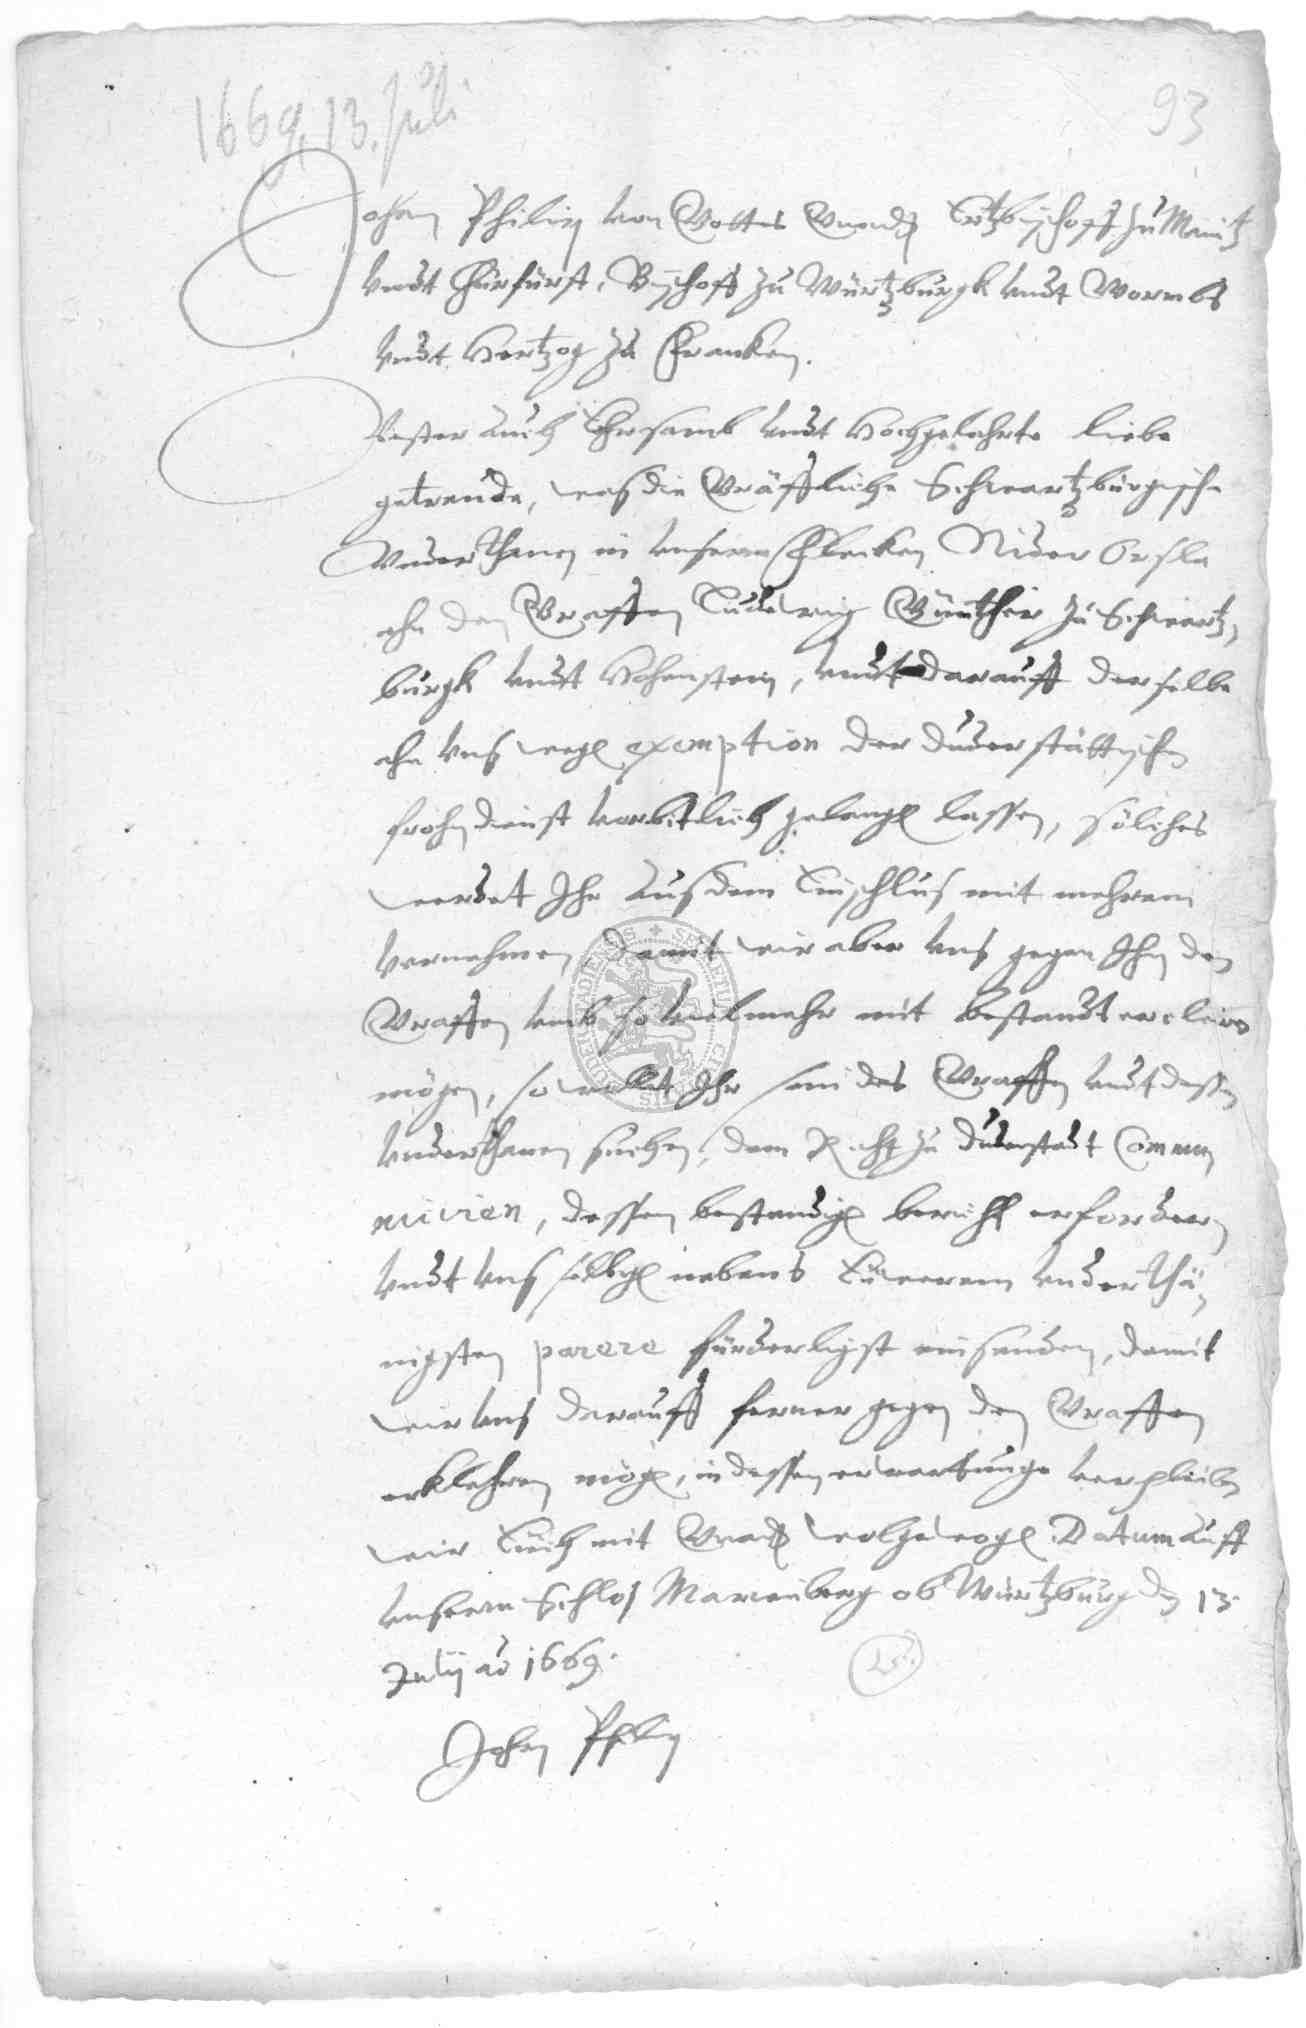 1669, 13. Juli
93
Johan Philip von Gottes Gnaden Ertzbischoff zu Maintz
vndt Churfürst, Bischoff zu Würtzburgk vndt Wormbs
vndt Hertzog zu Francken.
Vester auch Ehrsamb vndt Hochgelahrte liebe
getrewde, was die Gräffliche Schwartzburgische
Vnderthanen in vnserm Flecken Nider Orsla
ahn den Graffen Ludewig Günther zu Schwartz-
burgk vndt Hohenstein, vndt darauff derselbe
ahn vns wegen exemption der duderstättischen
frohndienst vorbitlich gelangen lassen, solches
werdet Ihr aus dem Einschlus mit mehrerm
vernehmen, damit wir aber vns gegen Ihn den
Graffen vmb so viel mehr mit bestandt ercleren
mögen, so wollt Ihr sein des Graffen vndt dessen
vnderthanen suchen, dem Raht zu Duderstadt Commu-
niciren, dessen bestendigen bericht erfordern
vndt vns selbigen nebens Ewerem vnderthä-
nigsten parere fürderligst einsenden, damit
wir vns darauff ferner gegen den Graffen
erklehren mögen, in dessen erwartunge verpleiben
wir Euch mit Gnaden wolgewogen Datum auff
vnserm Schlos Marienberg ob Würtzburg den 13.
Julij ao 1669.
Johan Philip
SPARTUM CI